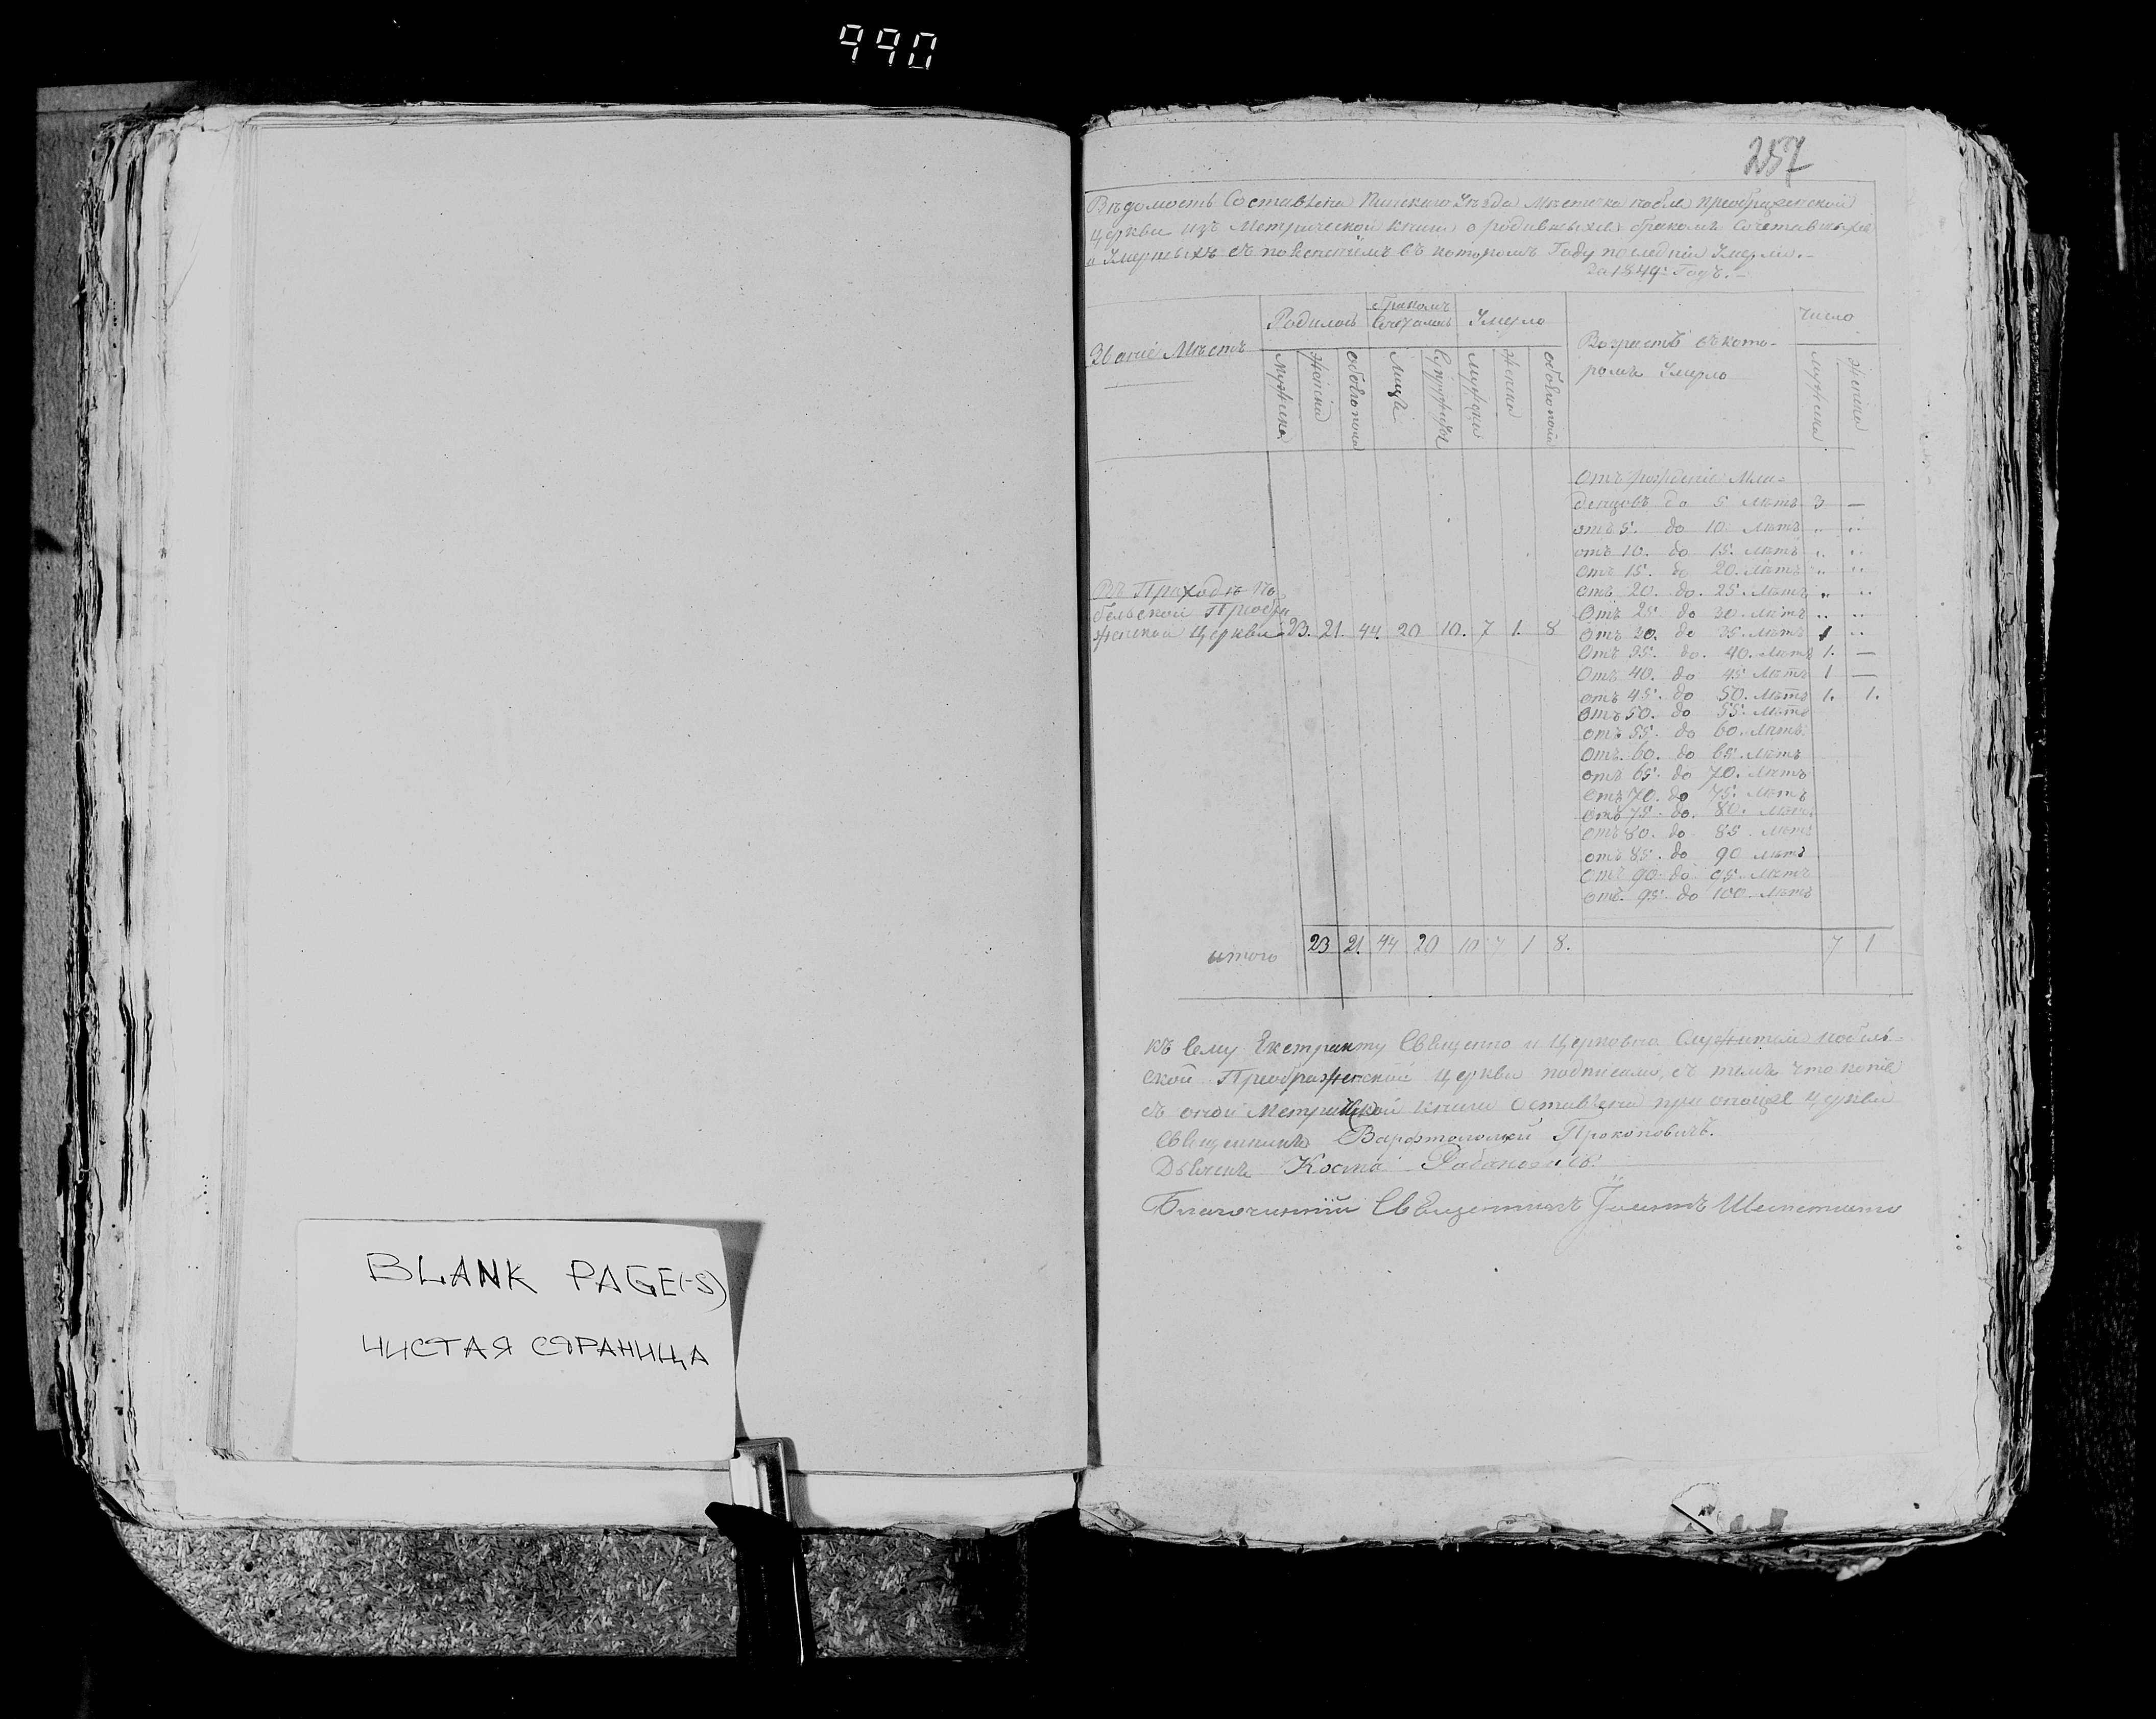 990
257
Вѣдомость Составлена Пинскаго Уѣзда Мѣстечка Нобля Преображенской
Церкви изъ Метрической книги о родившихся бракомъ Сочетавшихся
и Умершихъ съ поясненіемъ въ которомъ Году последніи Умерли.-
За 1849 Годъ.-
Званіе Мѣстъ
Родилось
бракомъ Сочеталось
Умерло
Возрастъ въ кото-
ромъ Умерло
Число
Мужска
Женска
Обоего пола
Лицъ
Супружъ
Мужска
Женска
Обоего пола
Мужска
Женска
Отъ рожденіе Мла-
денцовъ до 5 Лѣтъ 3 —
отъ 5. до 10 Лѣтъ " "
отъ 10. до 15. Лѣтъ " "
Отъ 15. до 20. Лѣтъ " "
отъ 20. до. 25. Лѣтъ " "
Отъ 25 до 30. Лѣтъ " "
Въ Приходѣ Но
бельской Преобра
женской Церкви 23. 21. 44 20 10. 7 1. 8
Отъ 30. до 35. Лѣтъ 1 "
Отъ 35. до. 40. Лѣтъ 1. —
Отъ 40. до 45 Лѣтъ 1 —
отъ 45. до 50. Лѣтъ 1. 1.
Отъ 50. до 55. Лѣтъ
отъ 55. до 60. Лѣтъ
Отъ 60. до 65. Лѣтъ
отъ 65. до 70. Лѣтъ
Отъ 70. до 75. Лѣтъ
отъ 75. до. 80. Лѣтъ
Отъ 80. до 85. Лѣтъ
отъ 85. до 90 Лѣтъ
Отъ 90. до 95. Лѣтъ
Отъ. 95. до 100. Лѣтъ
итого 23 21. 44 20 10 7 1 8. 7 1
Къ Сему Екстракту Священно и Церковно Служители Нобель-
ской Преображенской Церкви подписали, съ темъ что копія
съ оной Метрической книги Оставлена при оной Церкви
Священникъ Варфтоломей Прокоповичъ.
Дьячекъ Косма
Благочинній Священникъ
BLANK PAGE(-S)
ЧИСТАЯ СТРАНИЦА